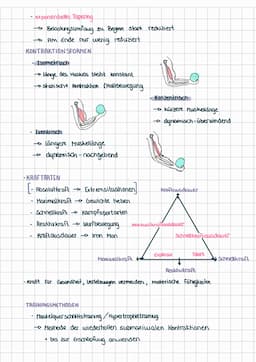 - exponentielles Tapering
→ Belastungsumfang zu Beginn stark reduziert
→ Am Ende nur wenig reduziert
KONTRAKTIONSFORMEN
- Isometrisch
→ Länge des Muskels bleibt konstant
→ statische Kontraktion / Haltebewegung
- Konzentrisch
→ kürzere Muskellänge
→ dynamisch - überwindend
- Exzentrisch
→ längere Muskellänge
→ dynamisch - nachgebend
KRAFTARTEN
[- Absolutkraft → Extremsituationen]
- Maximalkraft → Gewichte heben
- Schnellkraft → Kampfsportarten
- Reaktivkraft → Laufbewegung
- Kraftausdauer → Iron Man
Kraftausdauer
Maximalkraftausdauer
Schnellkraftausdauer
Maximalkraft
Explosiv
Start
Schnellkraft
Reaktivkraft
- Kraft für Gesundheit, Verletzungen vermeiden, motorische Fähigkeiten
TRAININGSMETHODEN
- Muskelquerschnittstraining / Hypertrophietraining
→ Methode der wiederholten submaximalen Kontraktionen
• bis zur Erschöpfung anwenden